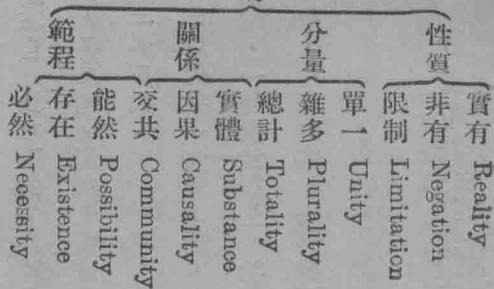 性質
實有 Reality
非有 Negation
限制 Limitation
分量
單一 Unity
雜多 Plurality
總計 Totality
關係
實體 Substance
因果 Causality
交共 Community
範程
能然 Possibility
存在 Existence
必然 Necessity